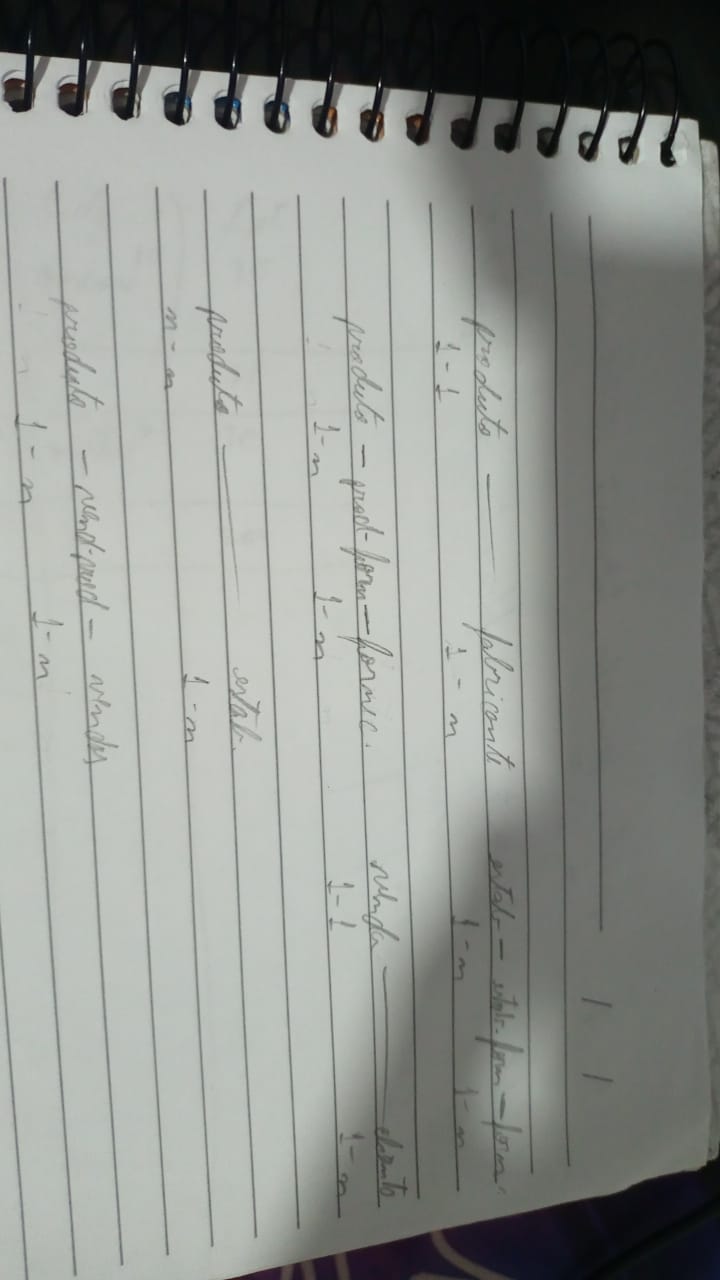 / /
produto — fabricante estab — estab-forn — forn.
1-1 1-n 1-n 1-n
produto — prod-forn — fornec. venda — cliente
1-n 1-n 1-1 1-n
produto — estab.
n-n 1-n
produto — vend-prod — vendas
1-n 1-n